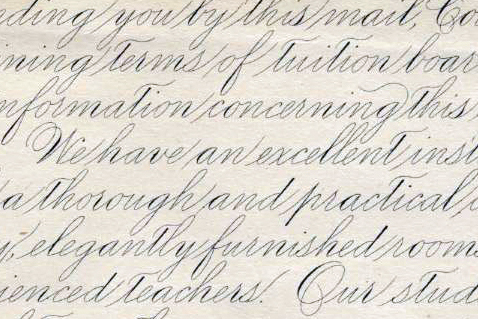 ding you by this mail, Co
ning terms of tuition boar
nformation concerning this
We have an excellent inst
a thorough and practical
y, elegantly furnished rooms
ienced teachers. Our stud